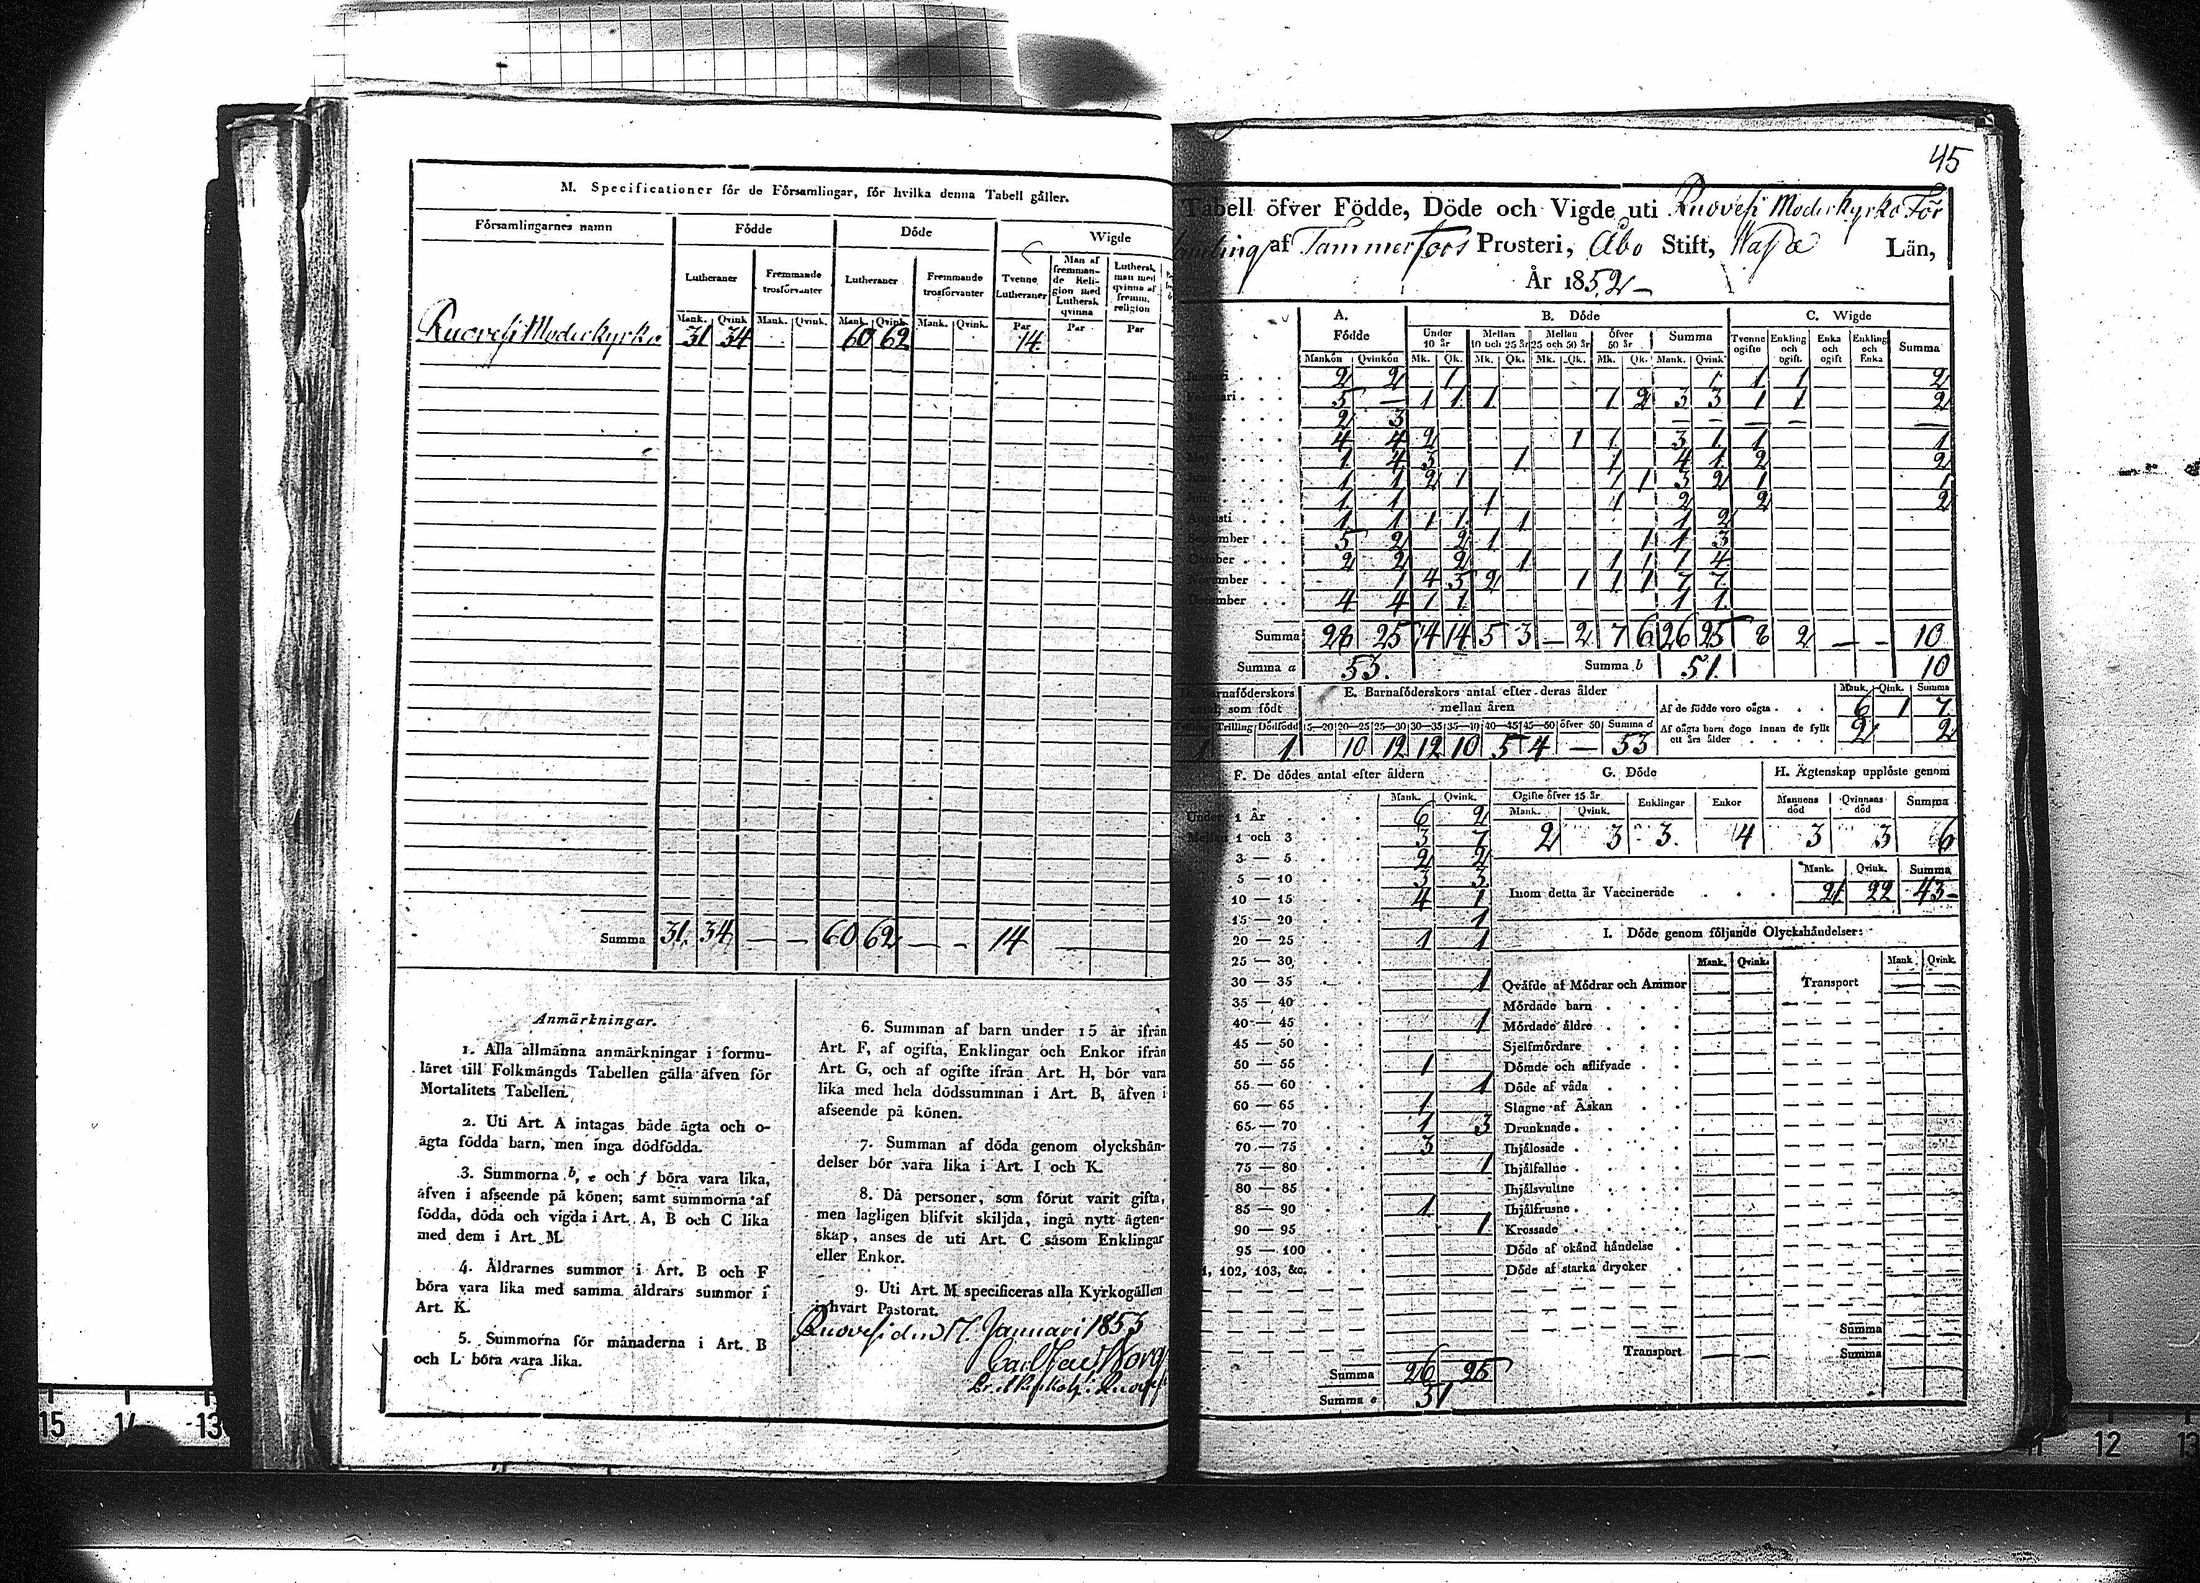 M. Specificationer för de Församlingar, för hvilka denna Tabell gäller.
Församlingarnes namn Födde Döde Wigde
Lutheraner Fremmande trosförvanter Lutheraner Fremmande trosförvanter Tvenne Lutheraner Man af fremmande Religion med Luthersk qvinna Luthersk man med qvinna af fremm. religion
Mank. Qvink. Mank. Qvink. Mank. Qvink. Mank. Qvink. Par Par Par
Ruovesi Moderkyrko 31 34 60 62 14
Summa 31. 34 — — 60 62 — — 14 —
Anmärkningar.
1. Alla allmänna anmärkningar i formu-
läret till Folkmängds Tabellen gälla äfven för
Mortalitets Tabellen.
2. Uti Art. A intagas både ägta och o-
ägta födda barn, men inga dödfödda.
3. Summorna b, e och f böra vara lika,
äfven i afseende på könen; samt summorna af
födda, döda och vigda i Art. A, B och C lika
med dem i Art. M.
4. Åldrarnes summor i Art. B och F
böra vara lika med samma åldrars summor i
Art. K.
5. Summorna för månaderna i Art. B
och L böra vara lika.
6. Summan af barn under 15 år ifrån
Art. F, af ogifta, Enklingar och Enkor ifrån
Art. G, och af ogifte ifrån Art. H, bör vara
lika med hela dödssumman i Art. B, äfven i
afseende på könen.
7. Summan af döda genom olyckshän-
delser bör vara lika i Art. I och K.
8. Då personer, som förut varit gifta,
men lagligen blifvit skiljda, ingå nytt ägten-
skap, anses de uti Art. C såsom Enklingar
eller Enkor.
9. Uti Art. M specificeras alla Kyrkogällen
i hvart Pastorat.
Ruovesi den 17. Januari 1853
45
Tabell öfver Födde, Döde och Vigde uti Ruovesi Moderkyrko För
samling af Tammerfors Prosteri, Åbo Stift, Wasa Län,
År 1852 —
A. B. Döde C. Wigde
Födde Under 10 år Mellan 10 och 25 år Mellan 25 och 50 år öfver 50 år Summa Tvenne ogifte Enkling och ogift. Enka och ogift Enkling och Enka Summa
Mankön Qvinkön Mk. Qk. Mk. Qk. Mk. Qk. Mk. Qk. Mank. Qvink.
Januari 2 2 1 1 1 1 2
Februari 5 — 1 1 1 1 2 3 3 1 1 2
2 3 — — — — —
4 4 2 1 1 3 1 1 1
Maj 1 4 3 1 1 4 1 2 2
Juni 1 1 2 1 1 1 3 2 1 1
Juli 1 1 1 1 2 2 2
Augusti 1 1 1 1 1 1 2
September 5 2 2 1 1 1 3
October 2 2 2 1 1 1 1 4
November 1 4 5 2 1 1 1 7 7
December 4 4 1 1 1 1
Summa 28 25 14 14 5 3 — 2 7 6 26 25 8 2 — — 10
Summa a 53. Summa b 51. 10
Barnaföderskors E. Barnaföderskors antal efter deras ålder Mank. Qink. Summa
som födt mellan åren Af de födde voro oägta 6 1 7
Trilling Dödfödd 15—20 20—25 25—30 30—35 35—40 40—45 45—50 öfver 50 Summa d Af oägta barn dogo innan de fyllt ett års ålder 2 2
1 1 10 12 12 10 5 4 — 53
F. De dödes antal efter åldern G. Döde H. Ägtenskap upplöste genom
Mank. Qvink. Ogifte öfver 15 år Enklingar Enkor Mannens död Qvinnans död Summa
Mank. Qvink.
2 3 3. 4 3 3 6
Under 1 År 6 2
Mellan 1 och 3 3 7
3 — 5 2 2
5 — 10 3 3
10 — 15 4 1
15 — 20 1
20 — 25 1 1
25 — 30
30 — 35 1
35 — 40
40 — 45 1
45 — 50
50 — 55 1
55 — 60 1
60 — 65 1
65 — 70 1 3
70 — 75 3
75 — 80 1
80 — 85
85 — 90 1
90 — 95 1
95 — 100
102, 103, &c.
Summa 26 25
Summa e 51
Mank. Qvink. Summa
Inom detta år Vaccinerade 21 22 43 —
I. Döde genom följande Olyckshändelser:
Mank. Qvink. Mank. Qvink.
Qväfde af Mödrar och Ammor Transport
Mördade barn
Mördade äldre
Sjelfmördare
Dömde och aflifvade
Döde af våda
Slagne af Åskan
Drunknade
Ihjälosade
Ihjälfallne
Ihjälsvultne
Ihjälfrusne
Krossade
Döde af okänd händelse
Döde af starka drycker
Summa
Transport Summa